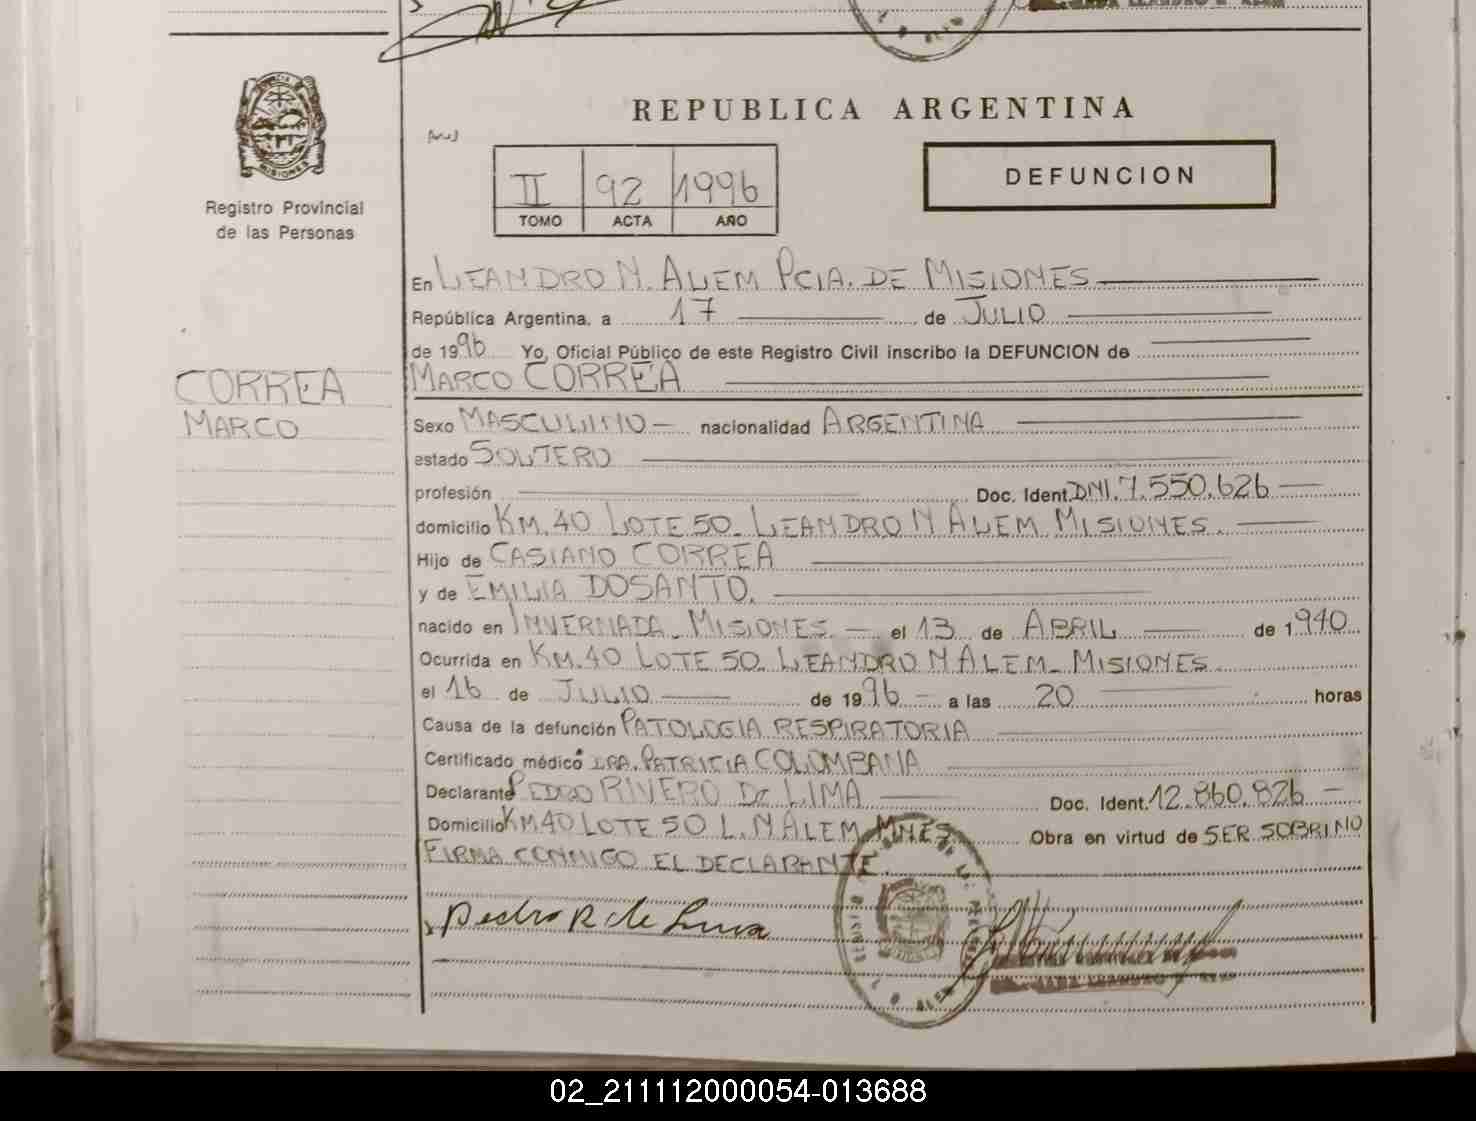 REPUBLICA ARGENTINA
MISIONES
Registro Provincial
de las Personas
II 92 1996
TOMO ACTA AÑO
DEFUNCION
En LEANDRO N. ALEM PCIA. DE MISIONES
República Argentina, a 17 de JULIO
de 1996 Yo, Oficial Público de este Registro Civil inscribo la DEFUNCION de
CORREA
MARCO
MARCO CORREA
Sexo MASCULINO nacionalidad ARGENTINA
estado SOLTERO
profesión Doc. Ident. DNI. 7.550.626
domicilio KM. 40 LOTE 50. LEANDRO N ALEM MISIONES.
Hijo de CASIANO CORREA
y de EMILIA DOSANTO.
nacido en INVERNADA. MISIONES. el 13 de ABRIL de 1940
Ocurrida en KM. 40 LOTE 50. LEANDRO N ALEM. MISIONES
el 16 de JULIO de 1996 a las 20 horas
Causa de la defunción PATOLOGIA RESPIRATORIA
Certificado médico DRA. PATRICIA COLOMBANA
Declarante PEDRO RIVERO DE LIMA Doc. Ident. 12.860.826
Domicilio KM 40 LOTE 50 L. N ALEM MNES. Obra en virtud de SER SOBRINO
FIRMA CONMIGO EL DECLARANTE.
Pedro R de Lima
02_211112000054-013688